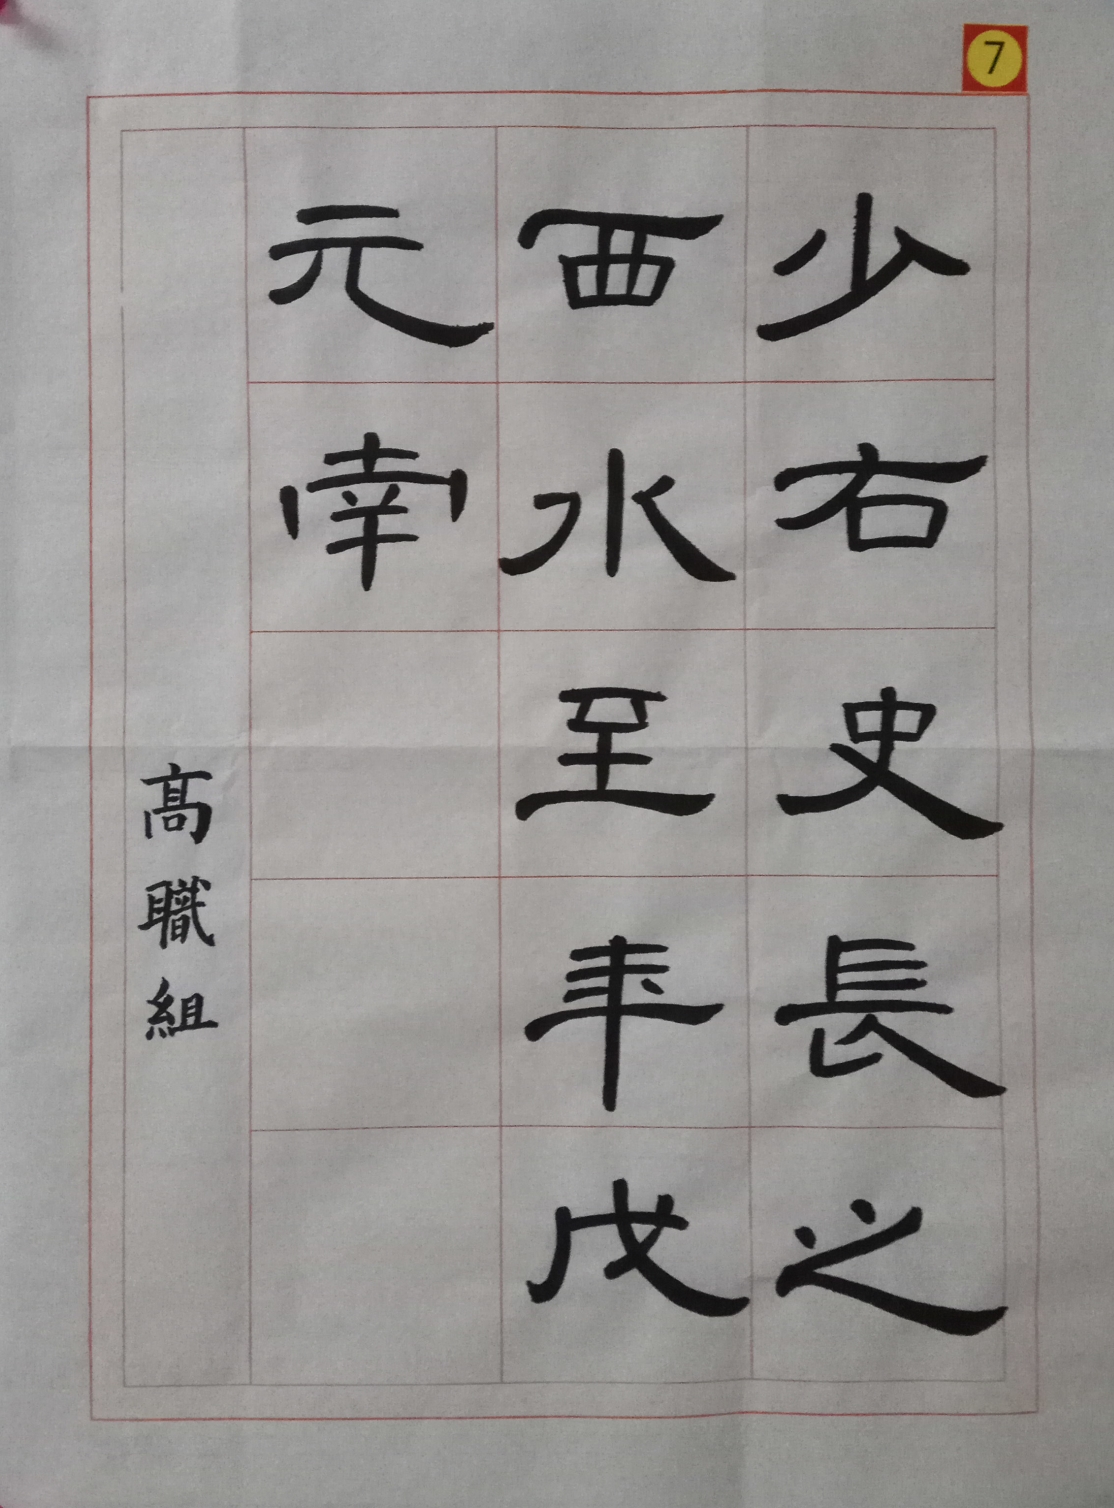 7
少右史長之
西水至年戊
元南
高職組